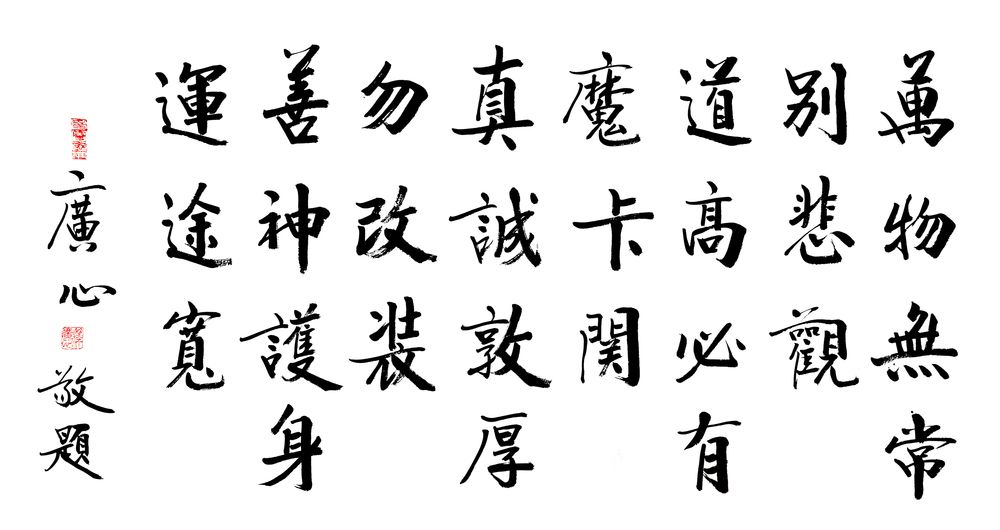 萬物無常
別悲觀
道高必有
魔卡関
真誠敦厚
勿改裝
善神護身
運途寬
廣心
敬題